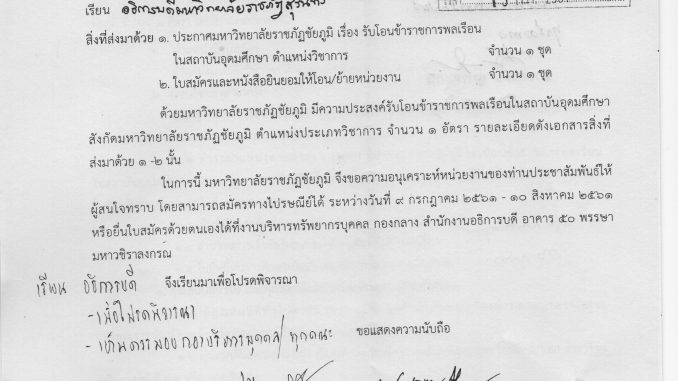 เรียน อธิการบดีมหาวิทยาลัยราชภัฏสุรินทร์
สิ่งที่ส่งมาด้วย ๑. ประกาศมหาวิทยาลัยราชภัฏชัยภูมิ เรื่อง รับโอนข้าราชการพลเรือน
ในสถาบันอุดมศึกษา ตำแหน่งวิชาการ จำนวน ๑ ชุด
๒. ใบสมัครและหนังสือยินยอมให้โอน/ย้ายหน่วยงาน จำนวน ๑ ชุด
ด้วยมหาวิทยาลัยราชภัฏชัยภูมิ มีความประสงค์รับโอนข้าราชการพลเรือนในสถาบันอุดมศึกษา
สังกัดมหาวิทยาลัยราชภัฏชัยภูมิ ตำแหน่งประเภทวิชาการ จำนวน ๑ อัตรา รายละเอียดดังเอกสารสิ่งที่
ส่งมาด้วย ๑ -๒ นั้น
ในการนี้ มหาวิทยาลัยราชภัฏชัยภูมิ จึงขอความอนุเคราะห์หน่วยงานของท่านประชาสัมพันธ์ให้
ผู้สนใจทราบ โดยสามารถสมัครทางไปรษณีย์ได้ ระหว่างวันที่ ๙ กรกฎาคม ๒๕๖๑ - ๑๐ สิงหาคม ๒๕๖๑
หรือยื่นใบสมัครด้วยตนเองได้ที่งานบริหารทรัพยากรบุคคล กองกลาง สำนักงานอธิการบดี อาคาร ๕๐ พรรษา
มหาวชิราลงกรณ์
จึงเรียนมาเพื่อโปรดพิจารณา
เรียน อธิการบดี
- เพื่อโปรดพิจารณา
- เห็นควรมอบ กองบริหารบุคคล/ ทุกคณะ
ขอแสดงความนับถือ